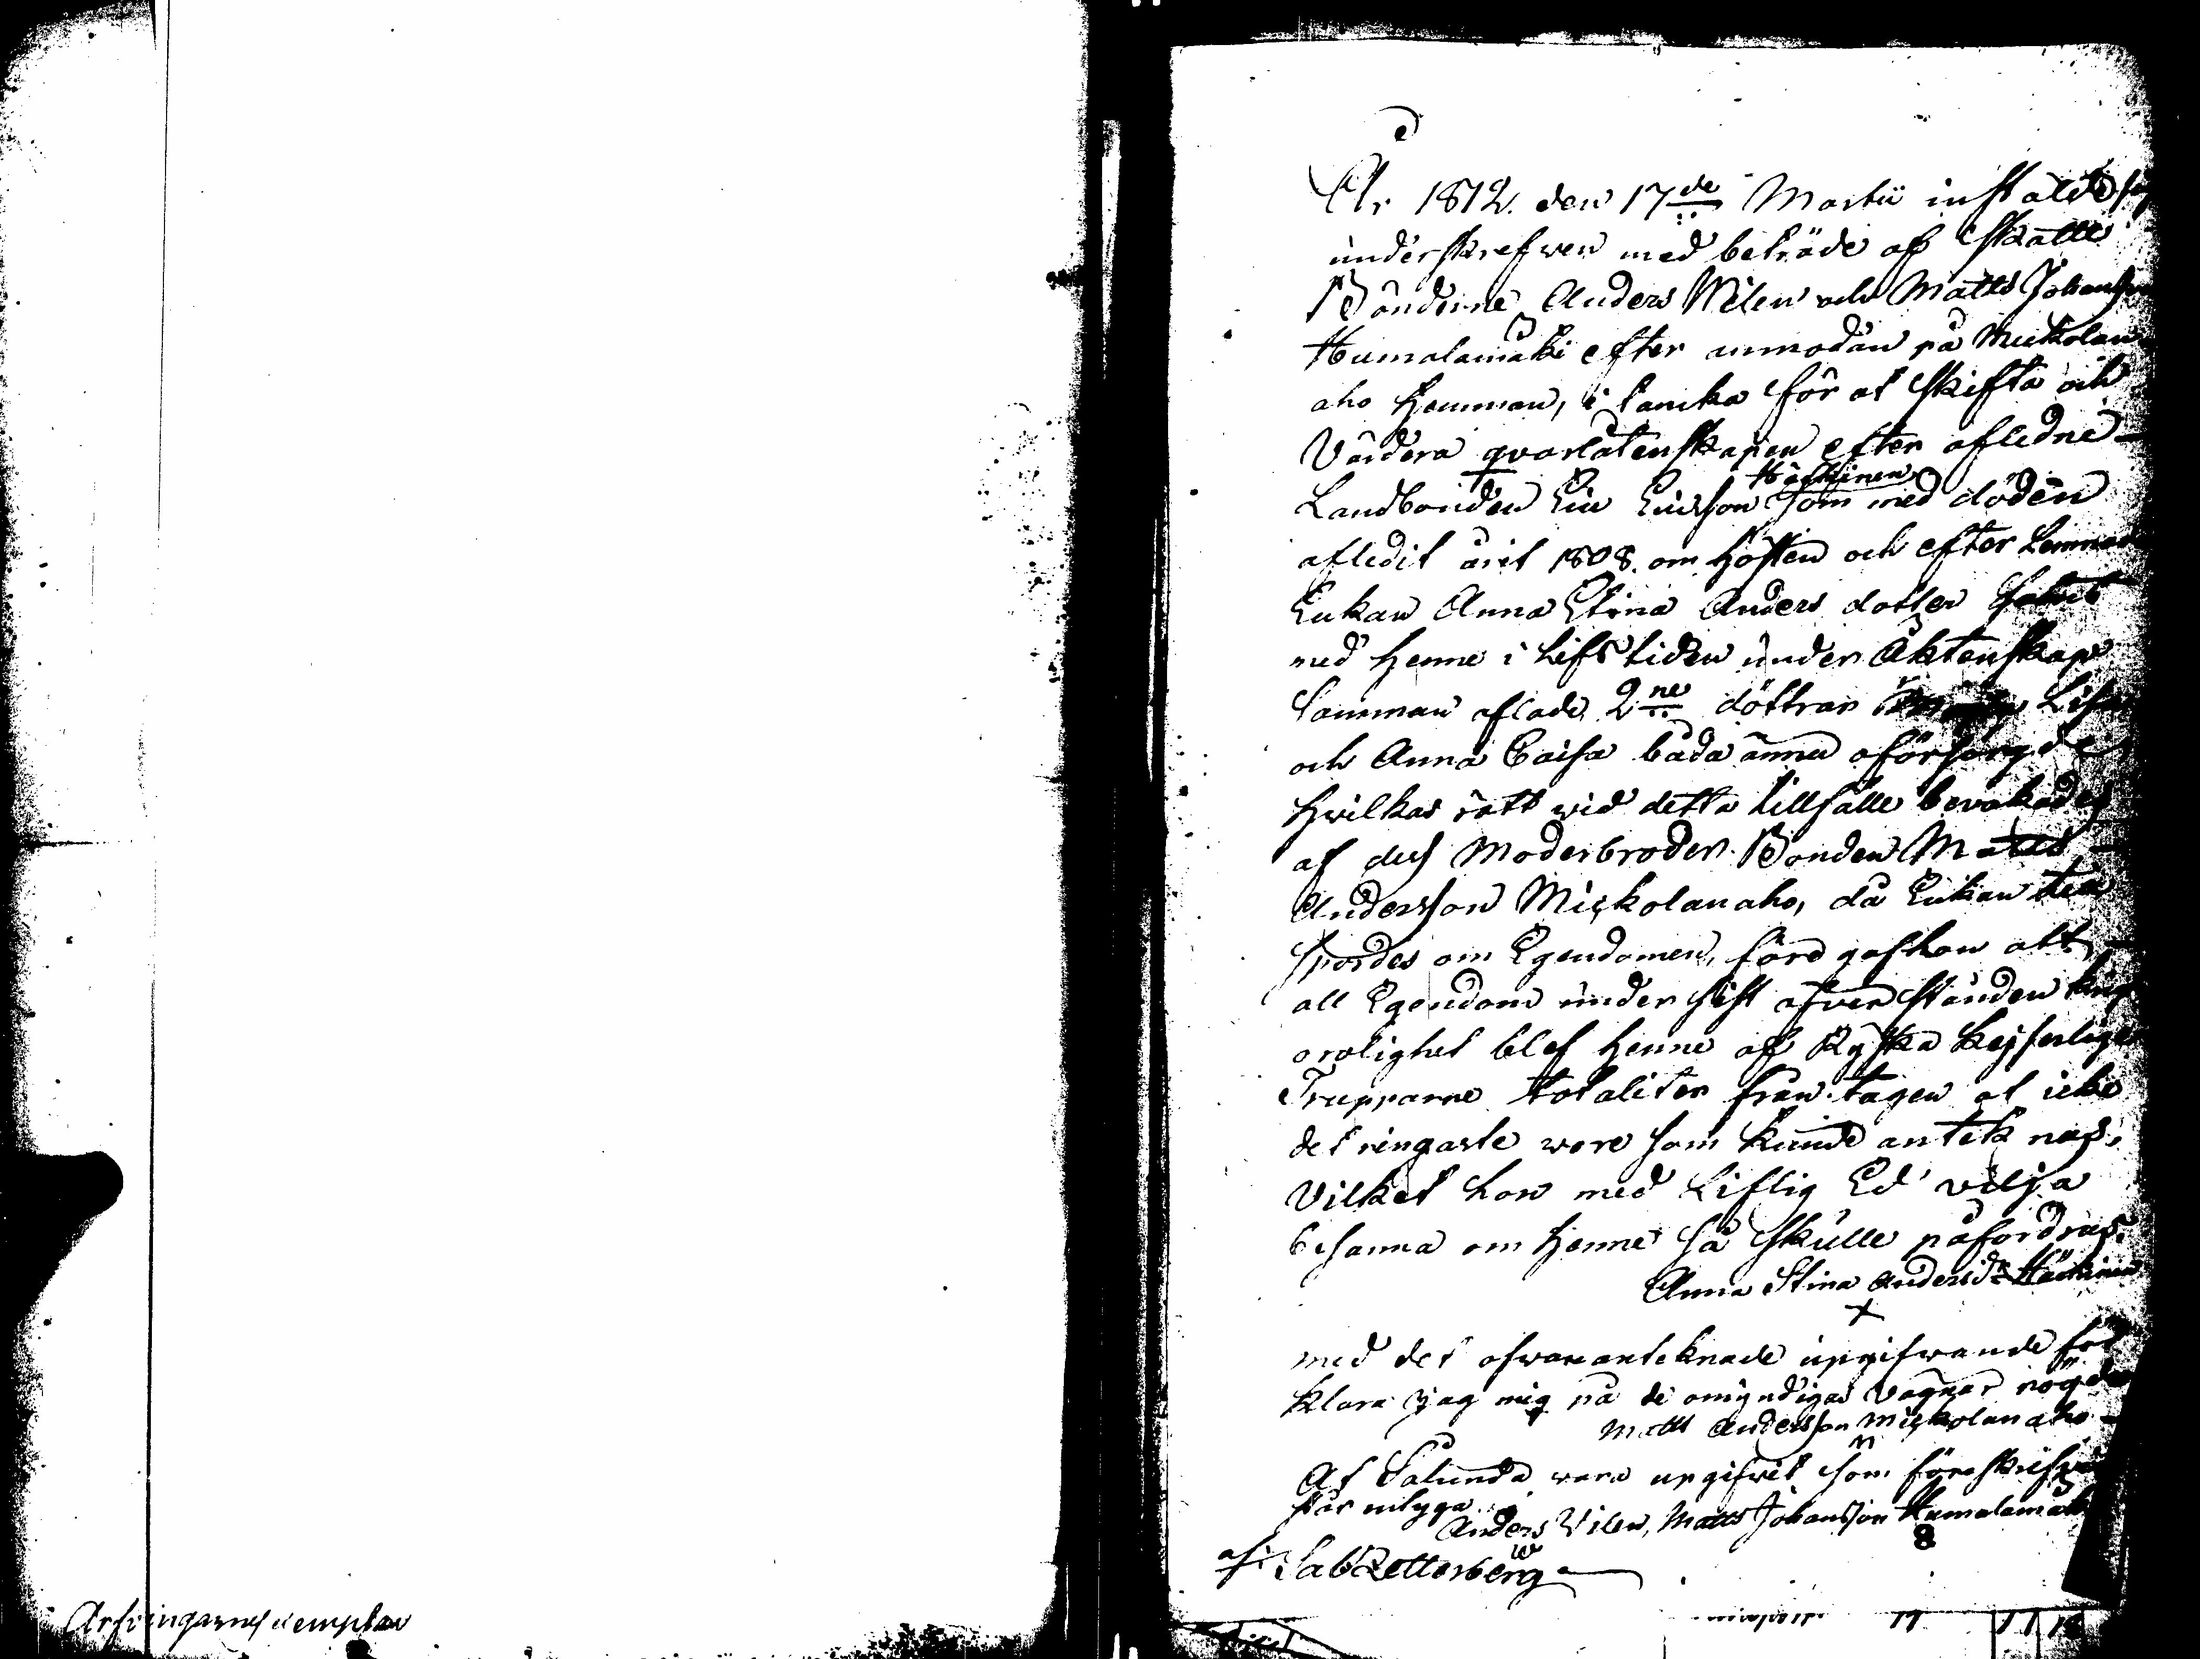 År 1812. den 17de Martii instälde sig
underskrefwen med beträde af Skatte
Bönderne Anders Wilen och Matts Johansson
Humalamäki efter anmodan på Mickolan
aho Hemman, i för at skifta och
Värdera qvarlåtenskapen efter afledne
Landbonden Eric Ericsson Häckinen som med döden
afledit årit 1808. om hösten och efter Lemnade
Enkan Anna Stina Anders dotter
med henne i Lifstiden under Äktenskap
Samman aflade 2ne döttrar Lisa
och Anna Caisa båda ännu oförsörgde
hvilkas rätt wid detta tillfälle bevakades
af des Moderbroder Bonden Matts
Andersson Mickolanaho, då Enkan til
spordes om Egendomen, föregaf hon att
all Egendom under sist öfverstånden krigs
orolighet blef henne af Ryska Kejserliga
Trupparne totaliter från tagen at icke
det ringaste wore som kunde anteknas.
Vilket hon med Liflig Ed vilja
besanna om henne så skulle påfordras.
Anna Stina Andersdr Häckinen
X
med det ofwananteknade upgifwande för
klarar jag mig på de omyndigas vägnar nögd
Matts Andersson Mickolanaho
At Sålunda vara upgifwit som föreskrifwit
står intyga
Anders Wilen, Matts Johansson Humalamäki
af Jab Zetterberg
Arfvingarnes exemplar